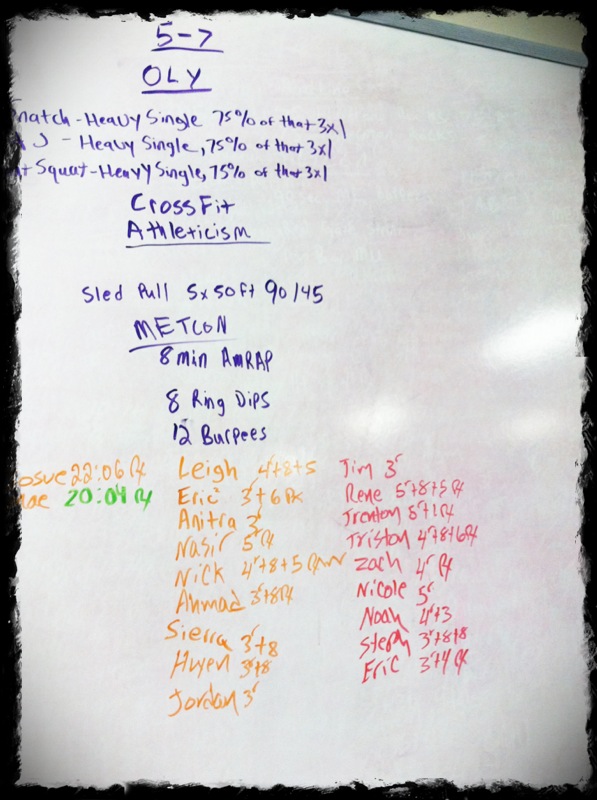 5-7
OLY
natch - Heavy Single 75% of that 3x1
J - Heavy Single, 75% of that 3x1
nt Squat - Heavy Single, 75% of that 3x1
CrossFit
Athleticism
Sled Pull 5x50ft 90/45
METCON
8 min AMRAP
8 Ring Dips
12 Burpees
osue 22:06 Rx
20:04 Rx
Leigh 4r+8+5
Eric 3r+6 Rx
Anitra 3r
Nasir 5r Rx
Nick 4r+8+5
Ahmad 3r+8 Rx
Sierra 3r+8
Huyen 3r+8
Jordan 3r
Jim 3r
Rene 5r+8+5 Rx
Trenton 5r+1 Rx
Triston 4r+8+6 Rx
Zach 4r Rx
Nicole 5r
Noah 4r+3
Steph 3r+8+8
Eric 3r+4 Rx